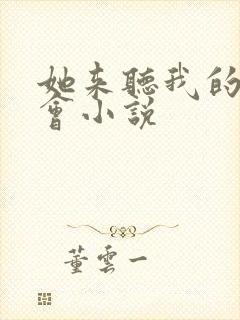 她来聽我的
會小説
董雲一